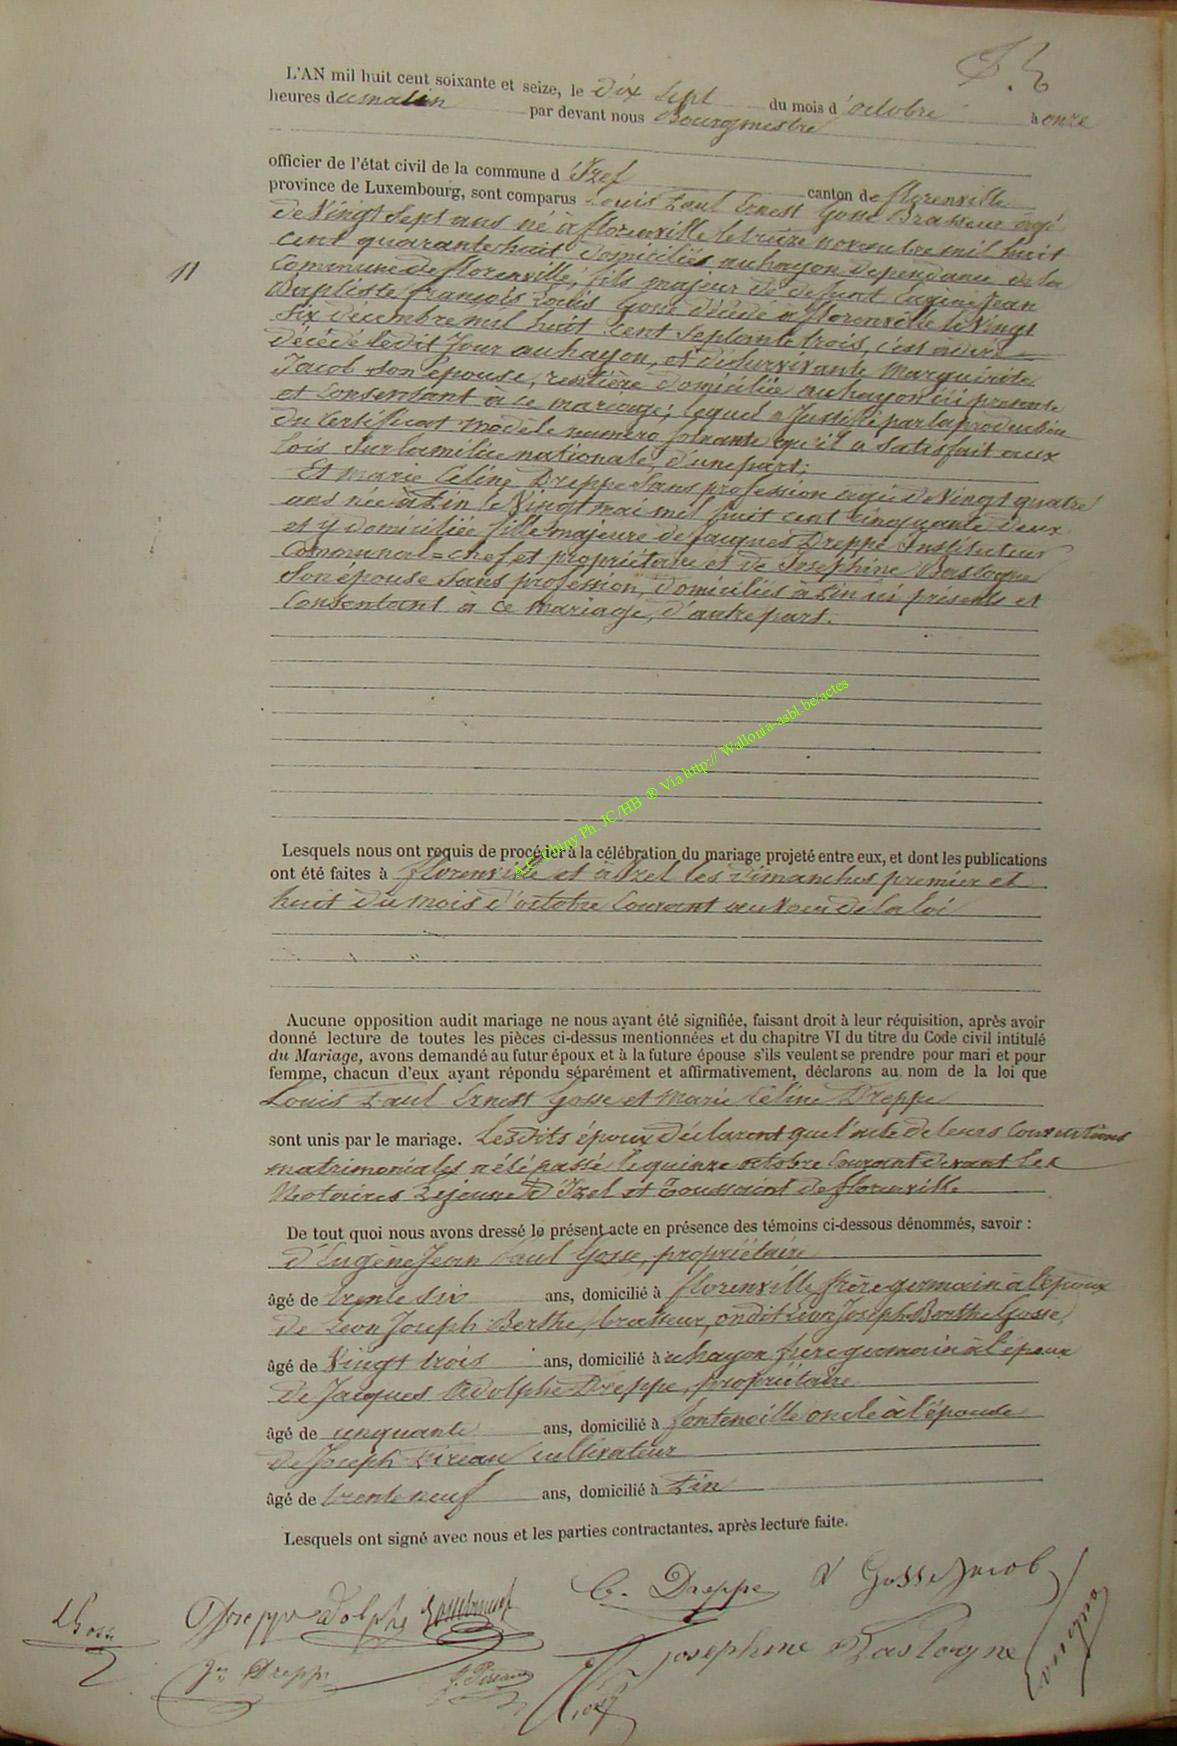 L'AN mil huit cent soixante et seize, le dix sept du mois d'octobre à onze
heures du matin par devant nous Bourgmestre
officier de l'état civil de la commune d'Izel canton de florenville
province de Luxembourg, sont comparus Louis Paul Ernest Gosse Brasseur âgé
de Vingt sept ans né à florenville le treize novembre mil huit
11
cent quarante huit domicilié au hayon dépendance de la
Commune de florenville, fils majeur de defunt Eugène Jean
Baptiste françois Louis Gosse décédé à florenville le Vingt
six décembre mil huit cent septante trois, c'est à dire
décédé ledit Jour au hayon, et de survivante Marguerite
Jacob son épouse, rentière domiciliée au hayon ici présente
et Consentant à ce mariage; lequel a Justifié par la production
du Certificat modèle numéro qu'il a satisfait aux
lois sur la milice nationale, d'une part;
Et Marie Céline Dreppe sans profession agée de Vingt quatre
ans née à Pin le Vingt mai mil huit cent cinquante deux
et y domiciliée fille majeure de Jacques Dreppe Instituteur
Communal=chef et propriétaire et de Joséphine Bastogne
Son épouse sans profession, domiciliés à Pin ici présents et
Consentant à ce mariage, d'autre part.
A.E. Chiny Ph. JC /HB ® Via http:// Wallonia-asbl.be/actes
Lesquels nous ont requis de procéder à la célébration du mariage projeté entre eux, et dont les publications
ont été faites à florenville et à Izel les dimanches premier et
huit du mois d'octobre Courant au voeu de la loi
Aucune opposition audit mariage ne nous ayant été signifiée, faisant droit à leur réquisition, après avoir
donné lecture de toutes les pièces ci-dessus mentionnées et du chapitre VI du titre du Code civil intitulé
du Mariage, avons demandé au futur époux et à la future épouse s'ils veulent se prendre pour mari et pour
femme, chacun d'eux ayant répondu séparément et affirmativement, déclarons au nom de la loi que
Louis Paul Ernest Gosse et Marie Céline Dreppe
sont unis par le mariage. Lesdits époux déclarent que l'acte de leurs Conventions
matrimoniales a été passé le quinze octobre Courant devant les
Notaires Lejeune d'Izel et Toussaint de florenville
De tout quoi nous avons dressé le présent acte en présence des témoins ci-dessous dénommés, savoir :
d'Eugène Jean Paul Gosse, propriétaire
âgé de trente six ans, domicilié à florenville frère germain à l'époux
de Léon Joseph Berthe, brasseur, on dit Léon Joseph Berthe Gosse,
âgé de Vingt trois ans, domicilié à u hayon frère germain à l'époux
de Jacques Adolphe Dreppe, propriétaire
âgé de cinquante ans, domicilié à fontenoille oncle à l'épouse
de Joseph Pireau cultivateur
âgé de trente neuf ans, domicilié à Pin
Lesquels ont signé avec nous et les parties contractantes, après lecture faite.
C. Dreppe V Gosse Jacob
L Gosse Dreppe Adolphe
Josephine Bastogne
Jn Dreppe J. Pireau